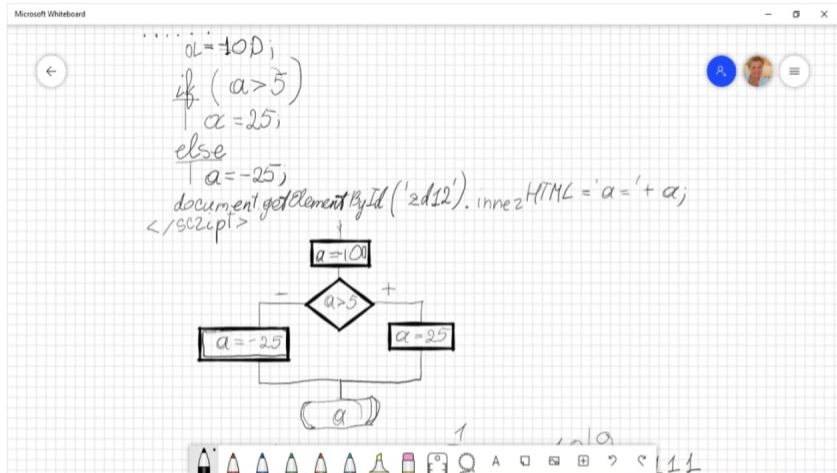 Microsoft Whiteboard
a=100;
if (a>5)
a=25;
else
a=-25;
document.getElementById('zd12').innerHTML='a='+a;
</script>
a=100
a>5
-
+
a=-25
a=25
a
1
A
11